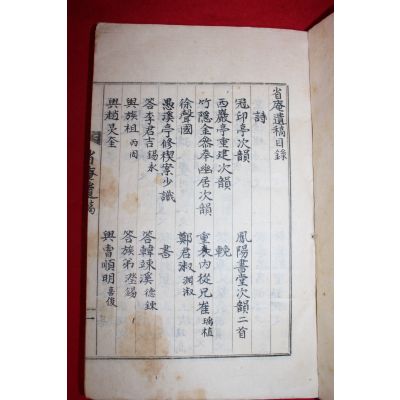 省庵遺稿目錄
詩
冠印亭次韻 鳳陽書堂次韻二首
西巖亭重建次韻 輓
竹隱金參奉幽居次韻 重表內從兄崔瑞植
徐聲國 鄭君淑潤淑
愚溪亭修稧案少識 書
答李君吉錫永 答韓溪德
與族祖丙周 答族弟錫
與趙炅奎 與曺順明喜俊
省庵遺稿 一